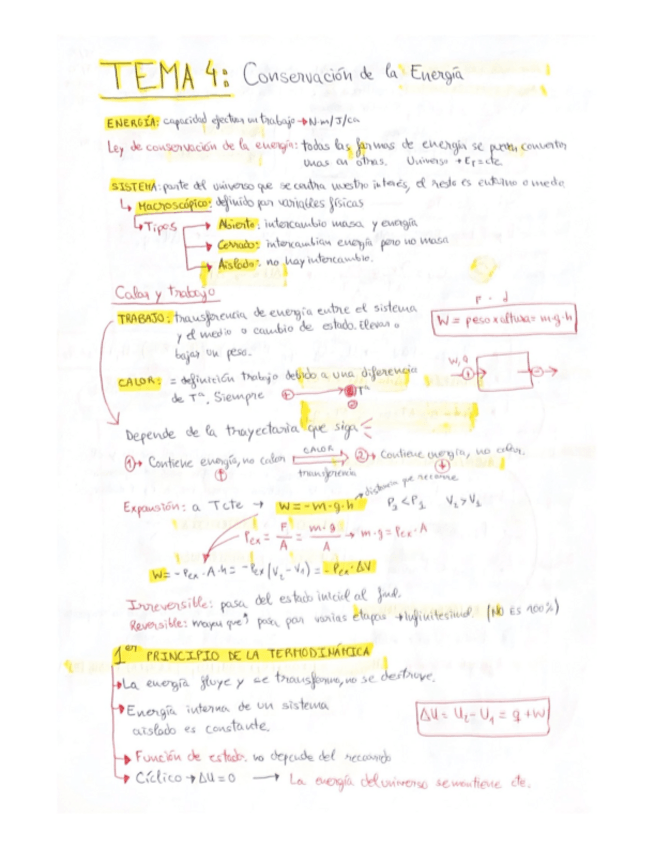 TEMA 4: Conservación de la Energía
ENERGÍA: capacidad efectuar un trabajo → N·m/J/ca
Ley de conservación de la energía: todas las formas de energía se pueden convertir
unas en otras. Universo → E_T = cte
SISTEMA: parte del universo que se centra nuestro interés, el resto es entorno o medio
↳ Macroscópico: definido por variables físicas
↳ Tipos
→ Abierto: intercambio masa y energía
→ Cerrado: intercambian energía pero no masa
→ Aislado: no hay intercambio.
Calor y trabajo
TRABAJO: transferencia de energía entre el sistema
y el medio o cambio de estado. Elevar o
bajar un peso.
F · d
W = peso x altura = m·g·h
CALOR: = definición trabajo debido a una diferencia
de Tª. Siempre + → Tª
W, Q
Depende de la trayectoria que siga
① → Contiene energía, no calor CALOR ② → Contiene energía, no calor.
transferencia
Expansión: a Tcte → W = -m·g·h → distancia que recorre
V₂ > V₁
Pex = F/A = m·g/A → m·g = Pex·A
W = -Pex·A·h = -Pex(V₂ - V₁) = -Pex·ΔV
Irreversible: pasa del estado inicial al final.
Reversible: pasa por varias etapas → Infinitesimal. (NO ES 100%)
1er PRINCIPIO DE LA TERMODINÁMICA
→ La energía fluye y se transforma, no se destruye.
→ Energía interna de un sistema
aislado es constante.
ΔU = U₂ - U₁ = q + W
→ Función de estado. no depende del recorrido
→ Cíclico → ΔU = 0 → La energía del universo se mantiene cte.